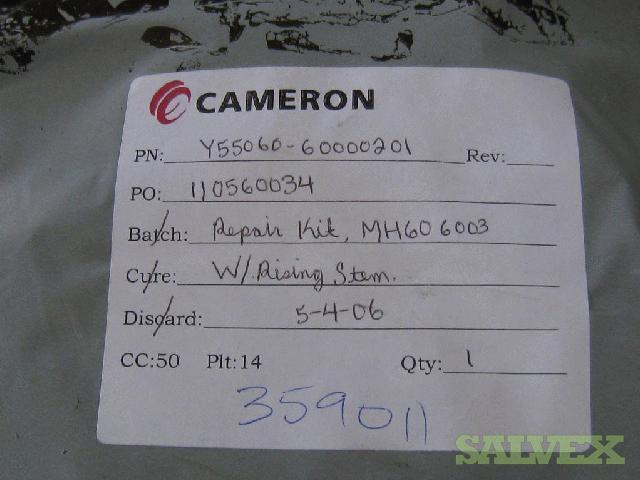 CAMERON
PN: Y55060-60000201 Rev:
PO: 110560034
Batch: Repair Kit, MH606003
Cure: W/ Rising Stem.
Discard: 5-4-06
CC:50 Plt:14 Qty: 1
359011
SALVEX